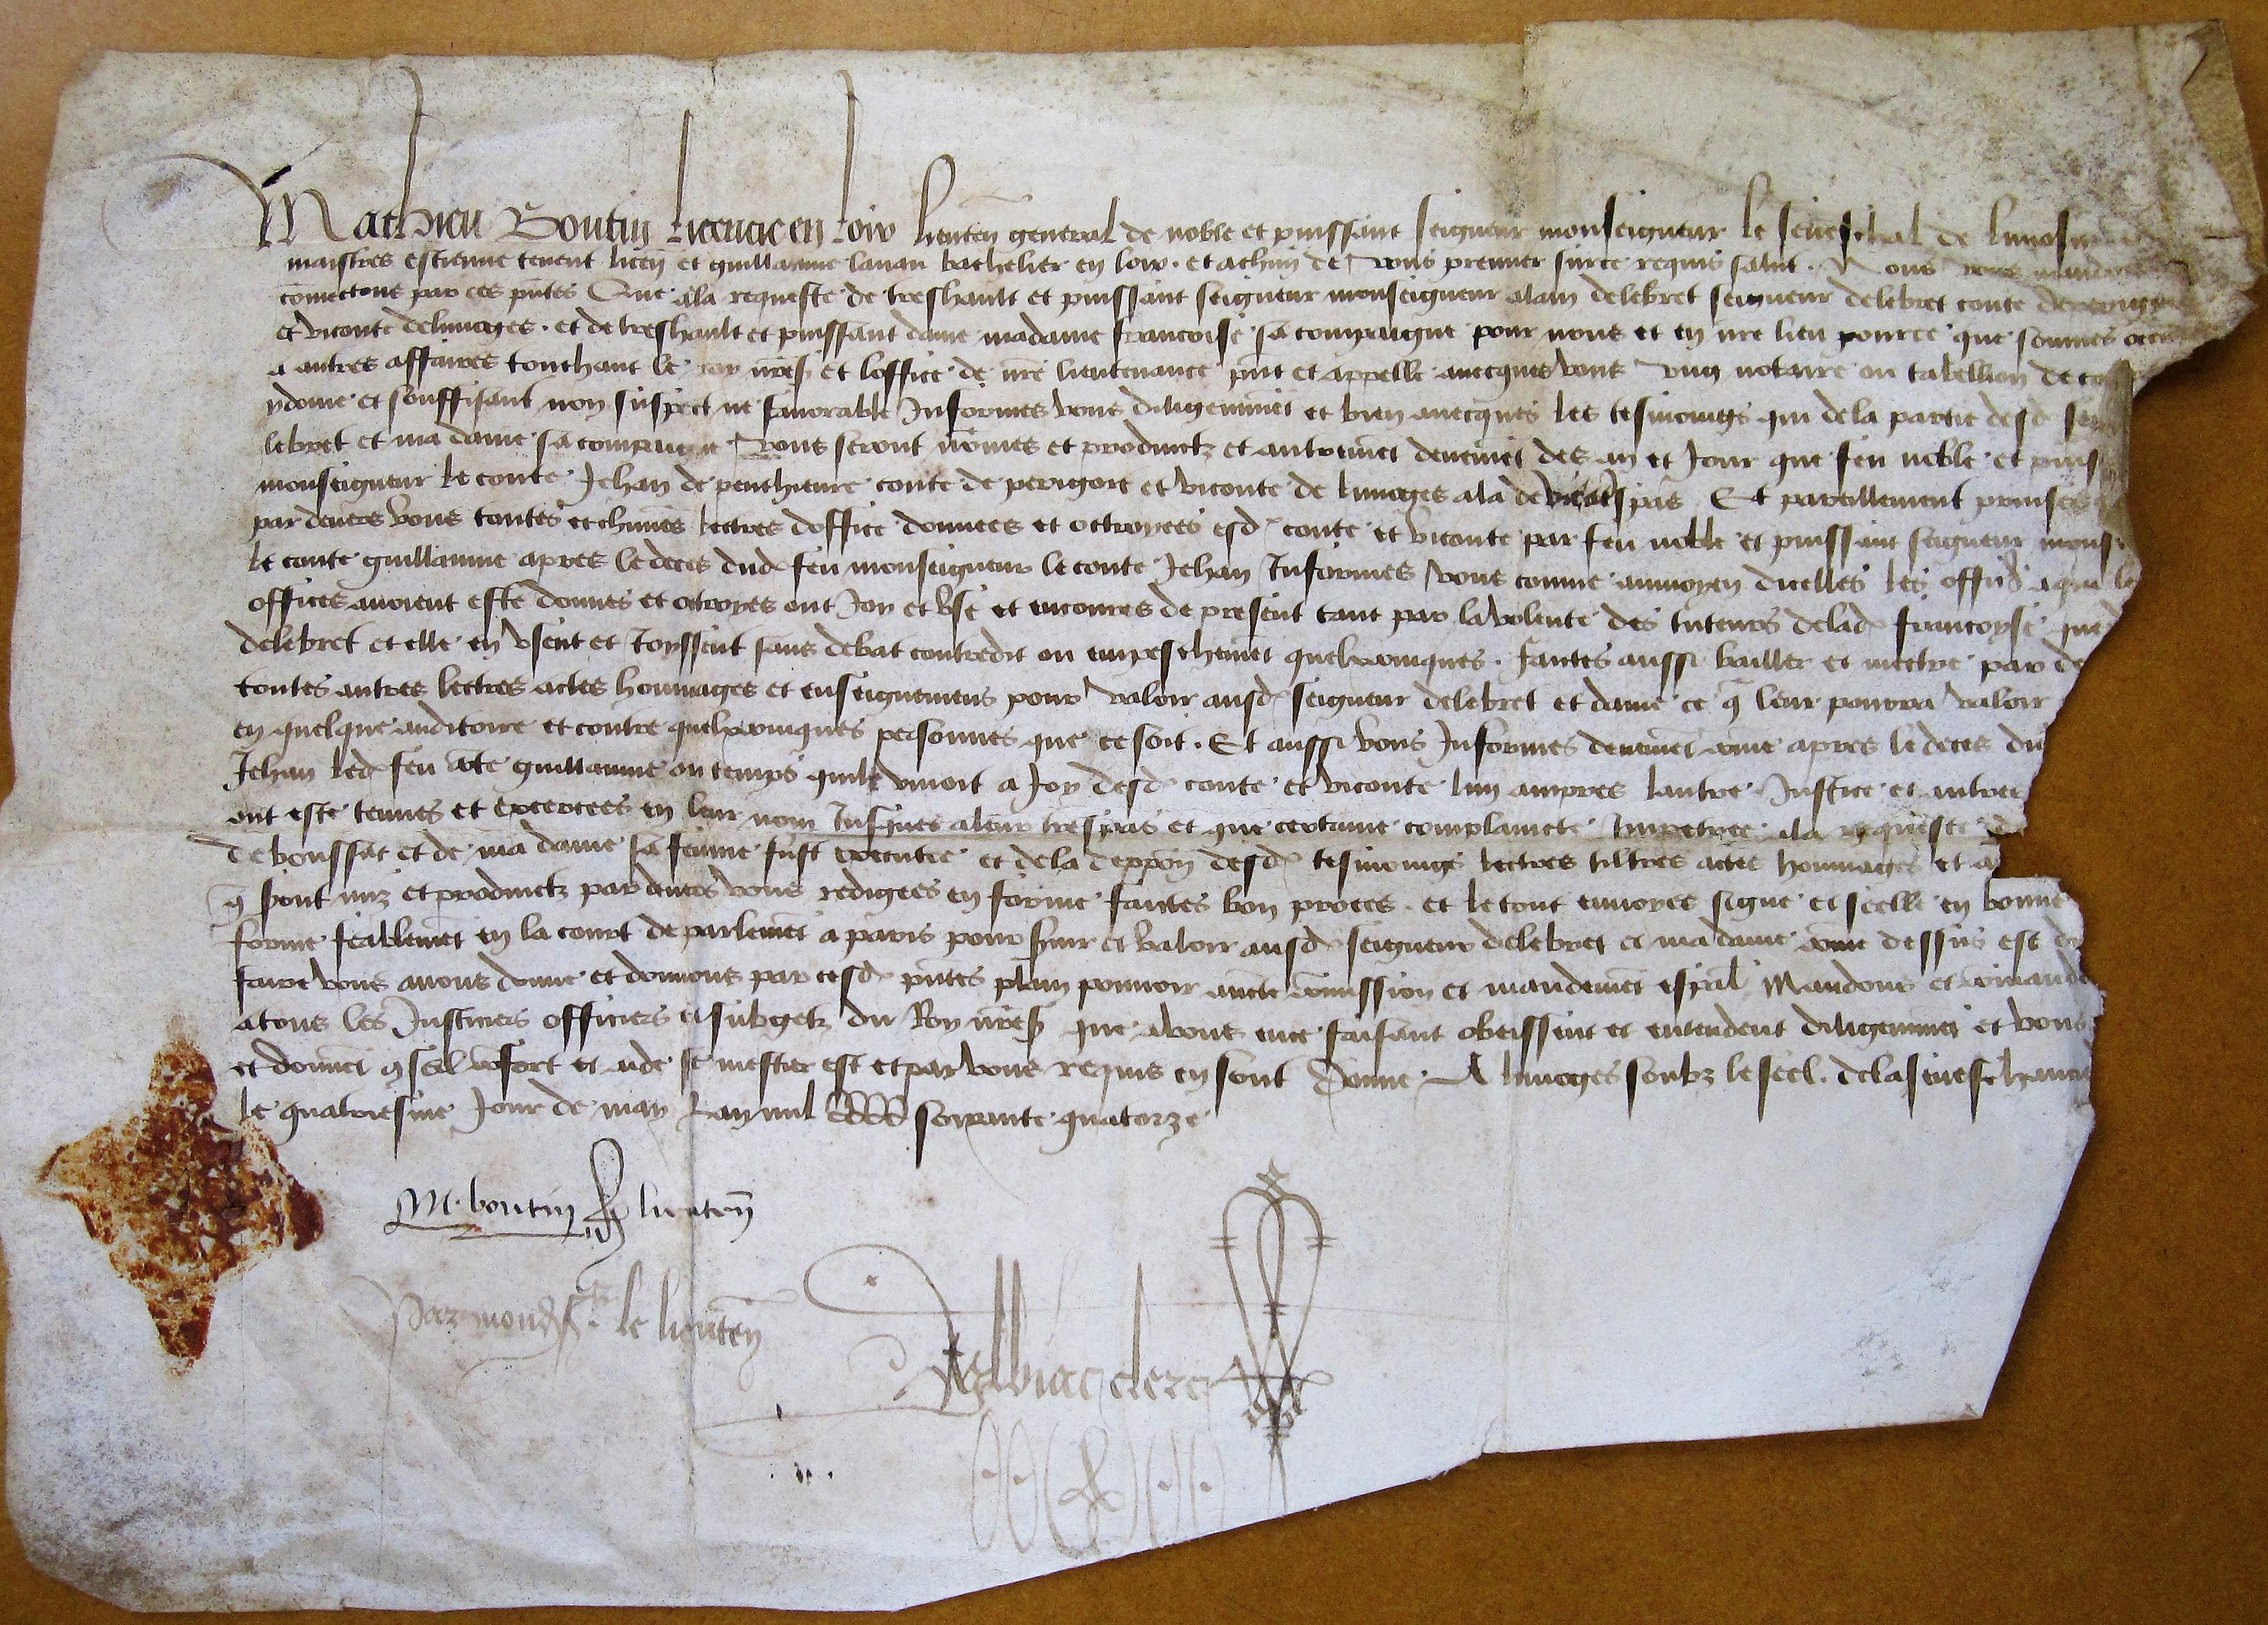 Mathieu Boutin licencie en loix lieuten̄ general de noble et puissant seigneur monseigneur le seneschal de limosin
maistres estienne tenent licen̄ et guillaume lauau bachelier en loix . et achun de vous premier surce requis salut . Nous vous mandons
cōmectons par ces pn̄tes Que ala requeste de treshault et puissant seigneur monseigneur alain delebret seigneur delebret conte deperigort
et viconte delimoges . et de treshault et puissant dame madame francoise sa compaigne pour nous et en nr̄e lieu pource que sommes occu
a autres affaires touchant le roy nr̄es et loffice de nr̄e lieutenance pn̄t et appelle auecques vous vng notaire ou tabellion de co
ydoine et souffisant non suspect ne fauorable Informes vous diligemmēt et bien auecques les tesmoings qui dela partie desd sei
lebret et ma dame sa compaigne vous seront nōmes et produictz et autremēt deuemēt des an et Jour que feu noble et puis
monseigneur le conte Jehan de penthieure conte de perigort et viconte de limoges ala de vie a trespas Et pareillement prinses
par deuers vous toutes et chūnes lectres doffice donnees et octroyees esd conte et viconte par feu noble et puissant seigneur mons
le conte guillaume apres le deces dud feu monseigneur le conte Jehan Informes vous comme aumoyen dicelles les offic̄s aqui le
offices auoient este donnes et octroyes ont Joy et vse et encoures de present tant par la volente des tuteurs delad francoyse que
delebret et elle en vsent et Joyssent sans debat contredit ou empeschemēt quelxconques . faites aussi bailler et mectre par de
toutes autres lectres actes hommages et enseignemens pour valoir ausd seigneur delebret et dame ce q̄ leur pourra valoir
en quelque auditoire et contre quelxconques personnes que ce soit . Et aussi vous Informes deuemēt cōme apres le deces du
Jehan led feu cōte guillaume ou temps quilz viuoit a Joy desd conte et viconte lun aupres lautre Justice et autres
ont este tenues et exercees en leur nom Jusques aleur trespas et que certaine complaincte Impetree ala requeste d
de boussac et de ma dame sa femme fust executee et dela deppon̄ desd tesmoings lectres tiltres actes hommages et a
q̄ sont miz et produictz par deuers vous redigees en forme faites bon proces . et le tout enuoyes signe et seelle en bonne
forme feablemēt en la court de parlemēt a paris pour s̄uir et valoir ausd seigneur delebret et ma dame cōme dessus est d
faire vous auons donne et donnons par cesd pn̄tes plain pouuoir aucte cōmission et mandemēt esp̄al Mandons et cōmande
atous les Justiciers officiers et subgetz du Roy nr̄es que auous ence faisant obeissent et entendent diligemmēt et vous
et donnēt 9seil cōfort et aide se mestier est et par vous requis en sont Donne A limoges soubz le seel . dela seneschaucie
le quatriesme Jour de may Lan mil cccc soixante quatorze
M . boutin lieuten̄
Par mondss . le lieuten̄
clerc